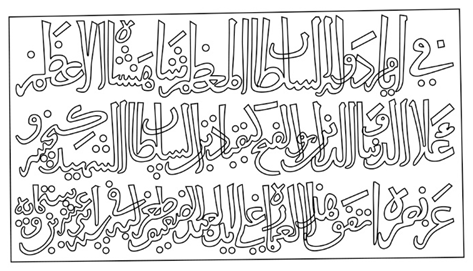 في ايام دولة السلطان المعظم شاهنشاه الاعظم
علا الدنيا والدين ابو الفتح كيقباد بن السلطان الشهيد كيخسرو
عز نصره اتفق هذا العمارة على يد العبد